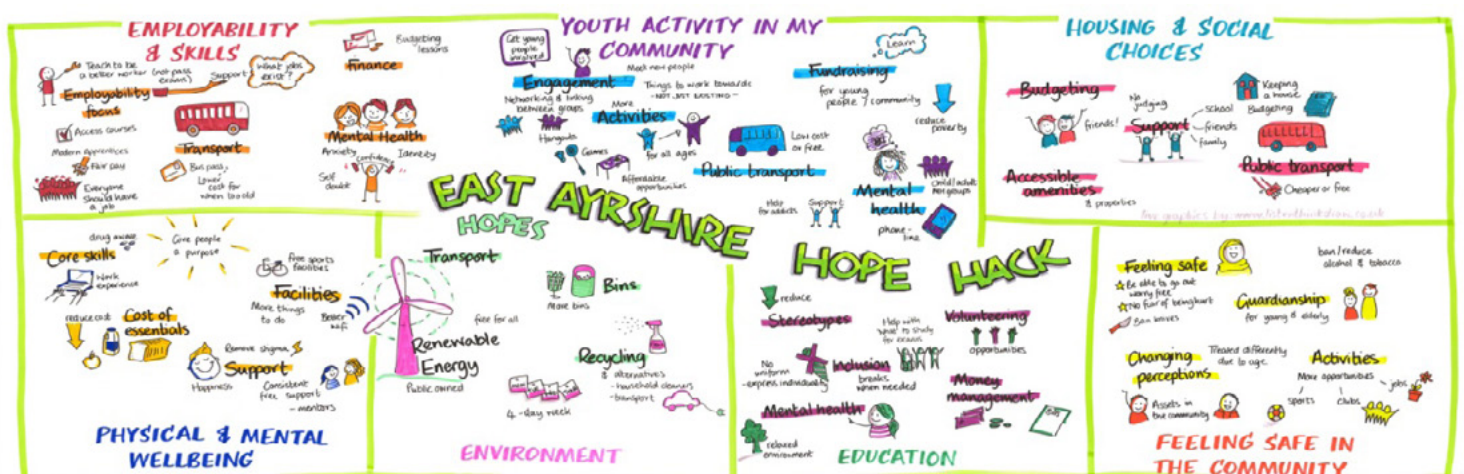 EMPLOYABILITY
& SKILLS
Teach to be
a better worker (not pass
exams)
Support
What jobs
exist?
Employability
focus
Access courses
Modern Apprentices
Fair pay
Everyone
should have
a job
Transport
Bus pass
Lower
cost for
when too old
Budgeting
lessons
Finance
Mental Health
Anxiety
Confidence
Identity
Self
doubt
YOUTH ACTIVITY IN MY
COMMUNITY
Get young
people
involved
Engagement
Meet new people
Networking & linking
between groups
Things to work towards
- NOT JUST EXISTING -
More
Activities
for all ages
Hangouts
Games
Affordable
opportunities
Learn
Fundraising
for young
people / community
reduce
poverty
Low cost
or free
Public transport
Mental
health
child/adult
groups
phone-
line
Help
for addicts
Support
HOUSING & SOCIAL
CHOICES
Budgeting
friends!
No
judging
Support
school
friends
family
Keeping
a house
Budgeting
Public transport
Cheaper or free
Accessible
amenities
& properties
EAST AYRSHIRE
HOPE HACK
HOPES
drug aware
Core skills
Work
experience
Give people
a purpose
free sports
facilities
Facilities
More things
to do
Better
wifi
reduce cost
Cost of
essentials
Remove stigma
Support
Happiness
Consistent
free support
- mentors
PHYSICAL & MENTAL
WELLBEING
Transport
free for all
Renewable
Energy
Public owned
Bins
More bins
Recycling
& alternatives
- household cleaners
- transport
4-day week
ENVIRONMENT
reduce
Stereotypes
Help with
what to study
Volunteering
opportunities
No
uniform
- express individuality
Inclusion
breaks
when needed
Money
management
Mental health
relaxed
environment
EDUCATION
Feeling safe
Be able to go out
worry free
No fear of being hurt
Ban knives
ban/reduce
alcohol & tobacco
Guardianship
for young & elderly
Changing
perceptions
Treated differently
due to age
Assets in
the community
Activities
More opportunities
sports
clubs
jobs
FEELING SAFE IN
THE COMMUNITY